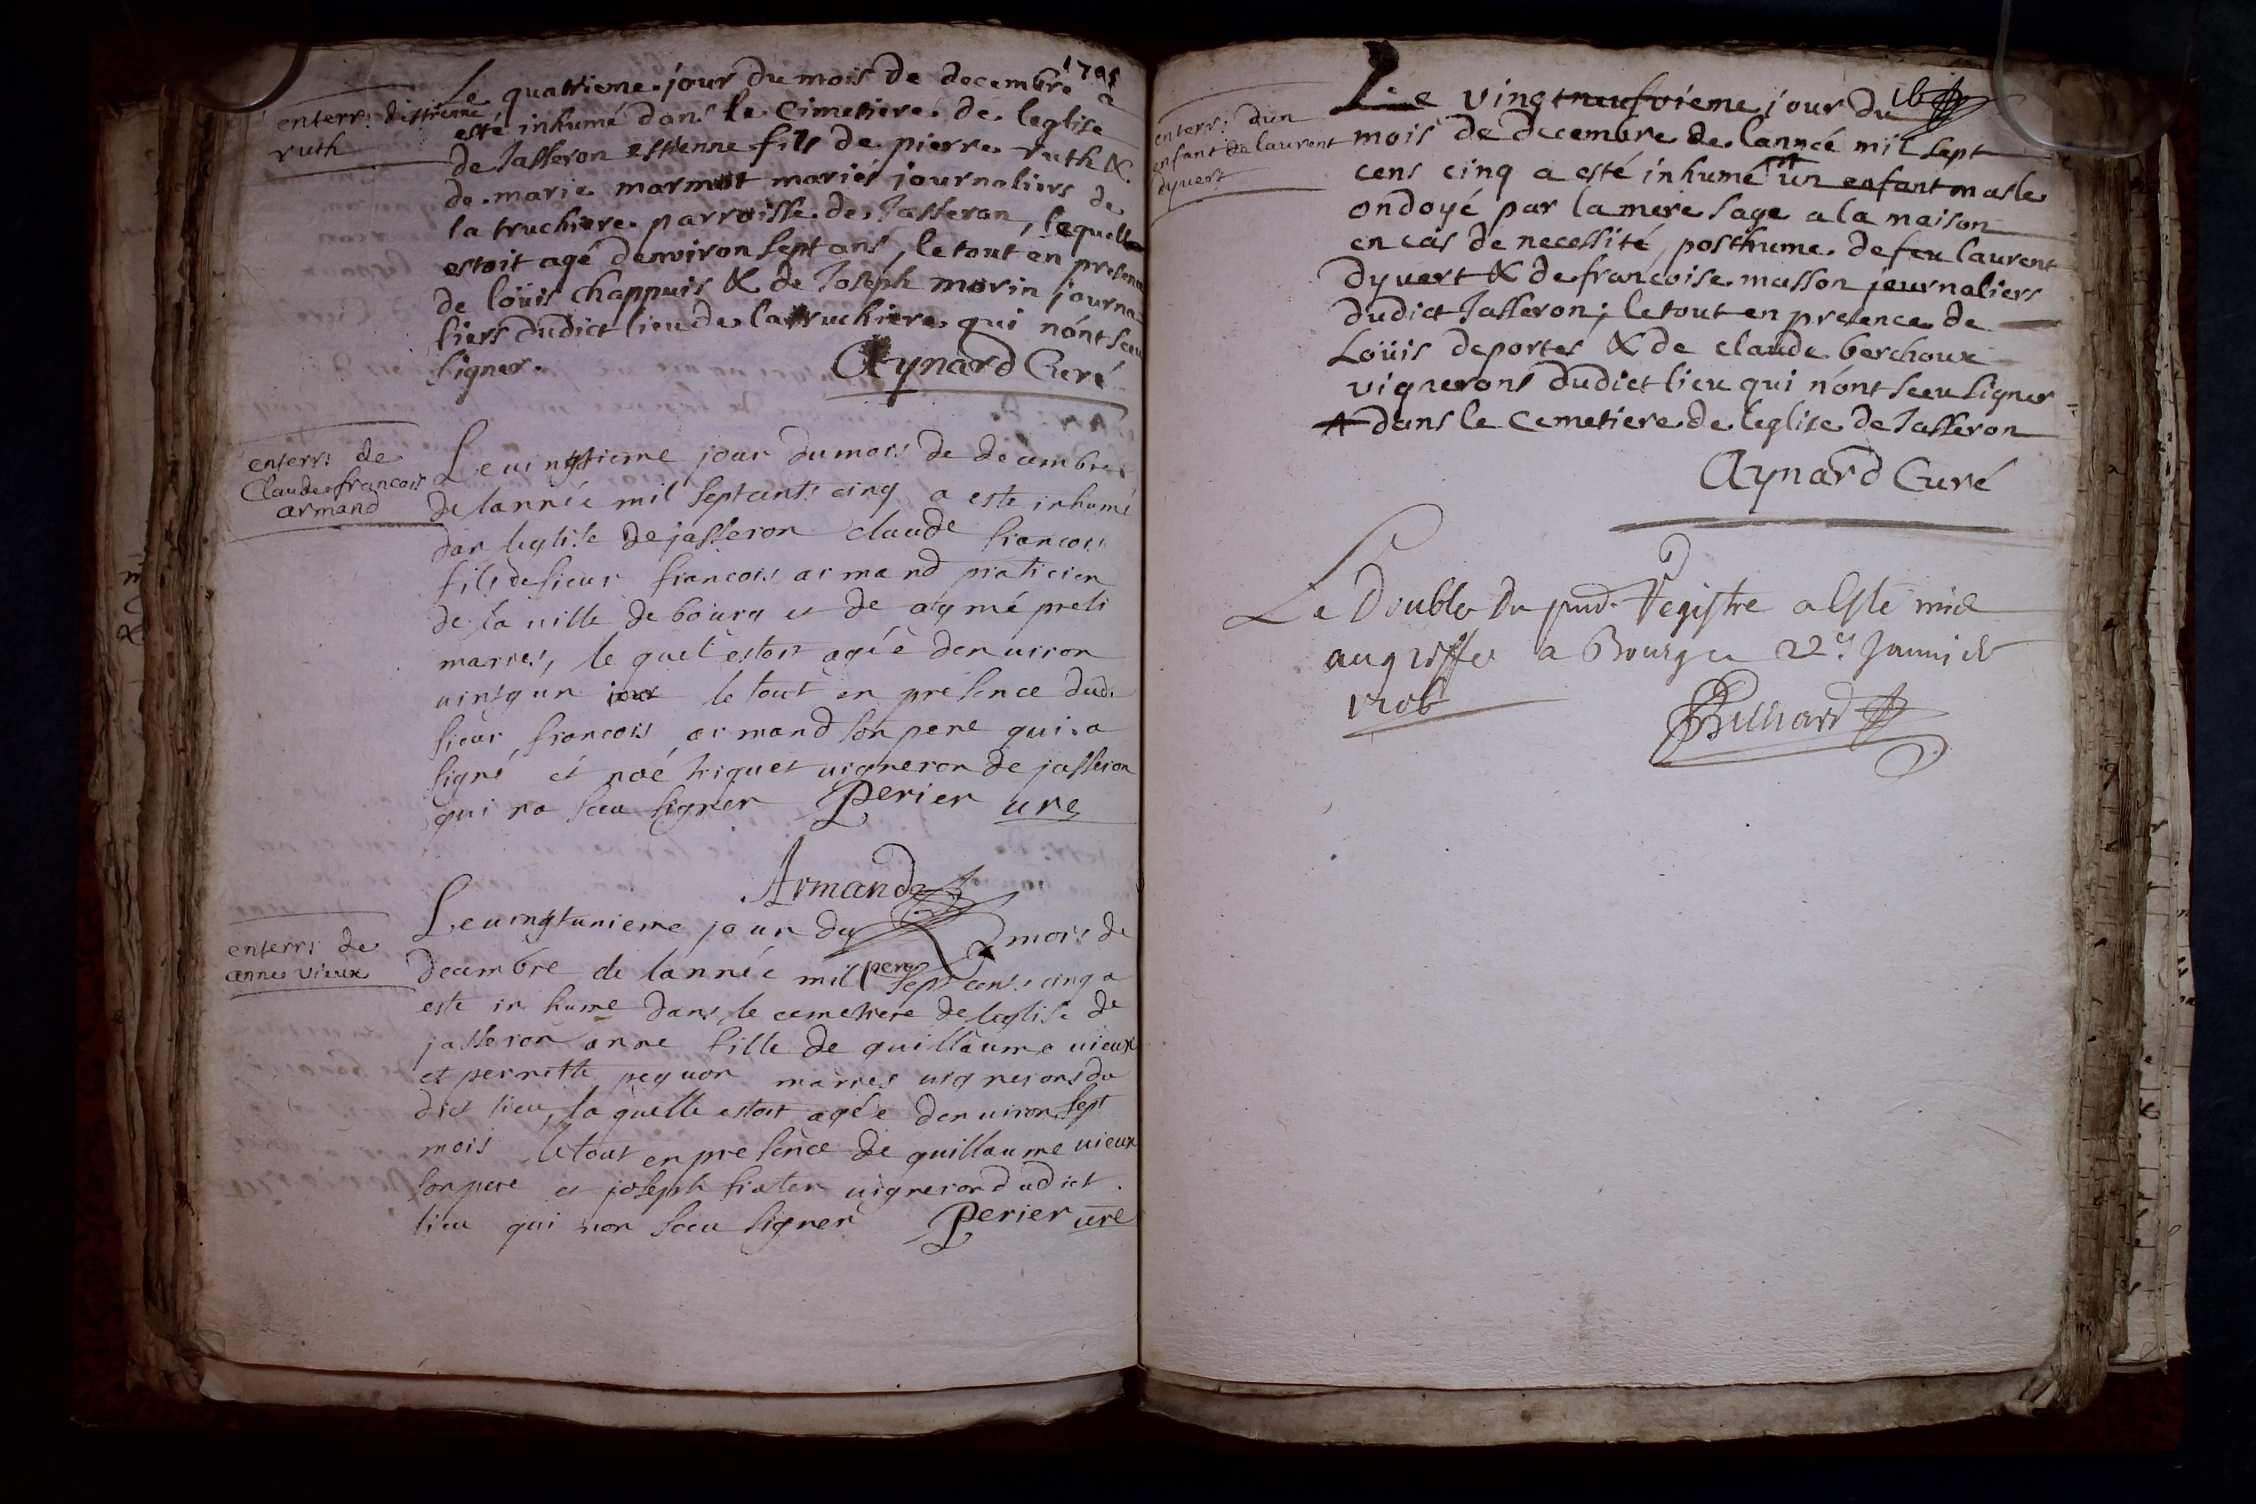 1705
enterr: destienne
ruth
Le quatrieme jour du mois de decembre a
esté inhumé dans le Cimetiere de leglise
de Jasseron estienne fils de pierre ruth &
de marie marmot mariés journaliers de
la truchiere parroisse de Jasseron, lequel
estoit agé denviron sept ans, le tout en presence
de loüis Chappuis & de Joseph morin journa
liers dudict lieu de la truchiere qui nónt sceu
signer.
Aynard Curé
enterr: de
Claude francois
armand
Le uingtieme jour du mois de decembre
de lannée mil sept cents cinq a esté inhumé
dan leglise de jasseron claude francois
fils de sieur francois armand praticien
de la uille de bourg et de aymé
marres, le quel estoit agéé denuiron
uingt un le tout en présence dud.
sieur francois armand son pere qui a
signé et noé triquet uigneron de jasseron
qui na sceu signer Perier ure
Armand
enterr: de
anne vieux
Le uingtunieme jour du mois de
decembre de lannéé mil sept cens cinq a
esté in humé dans le cemetiere de leglise de
jasseron anne fille de guillaume uieux
et pernette pequon marres uignerons du
dict lieu, la quelle estoit agéé denuiron sept
mois le tout en presence de guillaume uieux
son pere et joseph frater uigneron dudict
lieu qui non sceu signer Perier ure
enterr: dun
enfant de laurent
dyuert
Le vingtneufvieme jour du
mois de decembre de lannéé mil sept
cens cinq a esté inhumé un enfant masle
ondoyé par la mere sage a la maison
en cas de necessité, posthume de feu laurent
dyuert & de francoise masson journaliers
dudict Jasseron; le tout en presence de
Loüis deportes & de claude berchoux
vignerons dudict lieu qui nónt sceu signer
dans le cemetiere de leglise de Jasseron
Aynard Curé
Le Double du pnd. Registre a Esté mis
au greffe a Bourg ce 22e Januier
1706